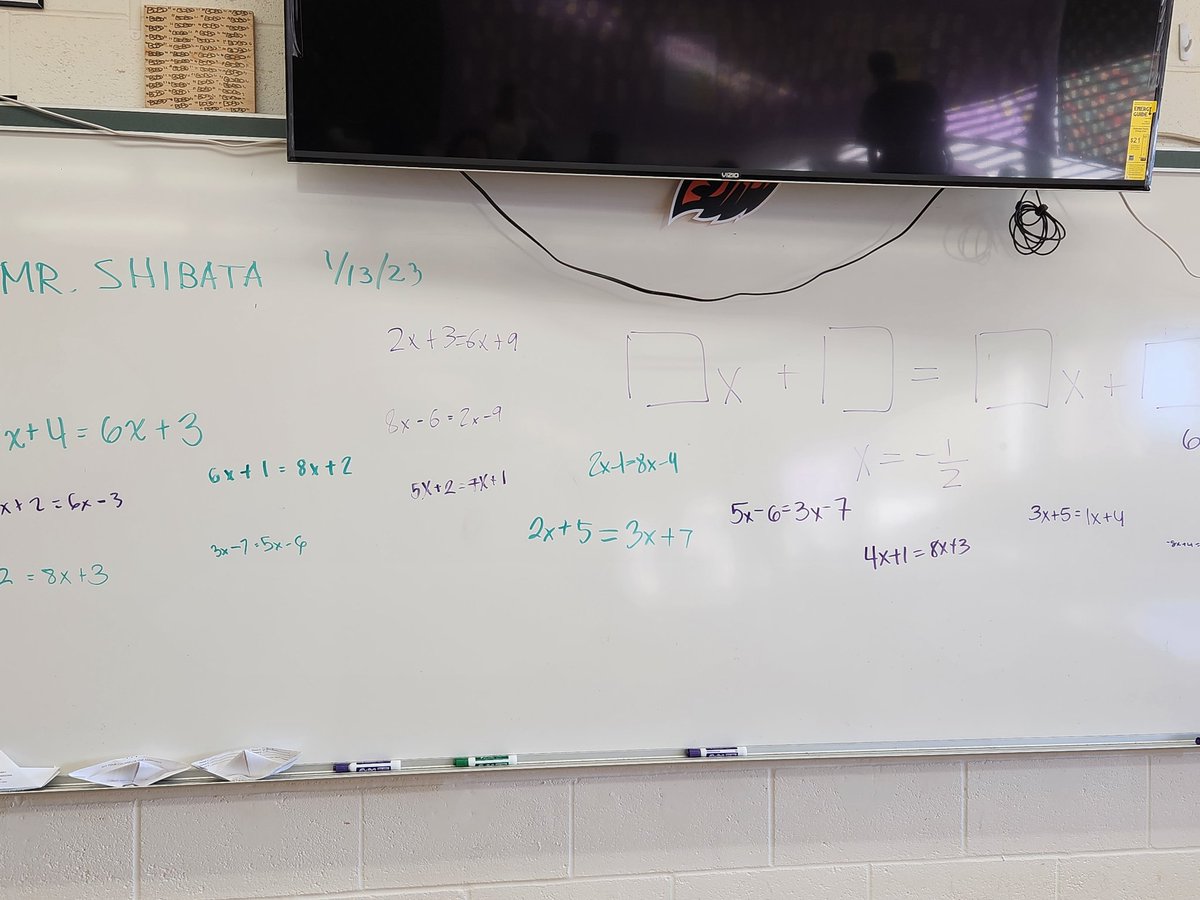 VIZIO
ENERGY GUIDE
$21
MR. SHIBATA 1/13/23
2x+3=6x+9
□x + □ = □x + □
8x-6=2x-9
x+4=6x+3
6x+1=8x+2
2x-1=8x-4
x=-1/2
6
x+2=6x-3
5x+2=7x+1
5x-6=3x-7
3x+5=1x+4
2x+5=3x+7
3x-7=5x-6
4x+1=8x+3
2=8x+3